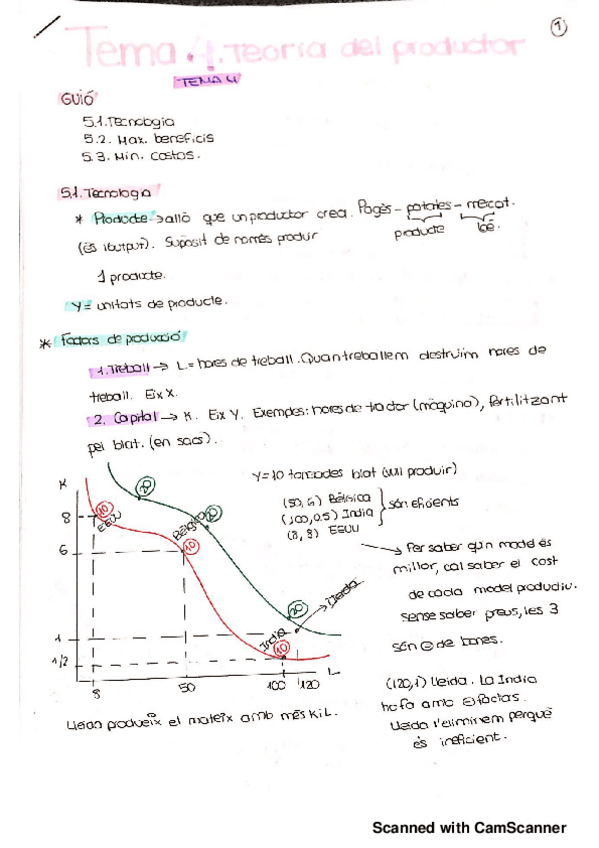 1
Tema 4. Teoría del productor
TEMA 4
GUIÓ
5.1. Tecnologia
5.2. Max. beneficis
5.3. Min. costos.
5.1. Tecnologia
* Producte → allò que un productor crea. Pagès - patates - mercat.
producte lloc.
(és l'output). Supòsit de només produir
1 producte.
Y = unitats de producte.
* Factors de producció
1. Treball → L = hores de treball. Quan treballem destruim hores de
treball. Eix X.
2. Capital → K. Eix Y. Exemples: hores de tractor (màquina), fertilitzant
pel blat. (en sacs).
Y=10 tonelades blat (vull produir)
(50, 6) Bèlgica
(100, 0.5) India
(8, 8) EEUU
són eficients
→ Per saber quin model és
millor, cal saber el cost
de cada model productiu.
Sense saber preus, les 3
són = de bones.
(120, 1) Lleida. La India
ho fa amb factors.
Lleida l'eliminem perquè
és ineficient.
K
8
6
1
1/2
8
50
100
120
L
10
EEUU
Bèlgica
10
India
10
20
20
20
Lleida
Lleida produeix el mateix amb més K i L.
Scanned with CamScanner